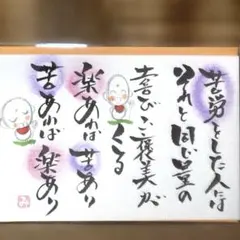 苦労をした人には
それと同じ量の
喜びご褒美が
くる
楽あれば苦あり
苦あれば楽あり